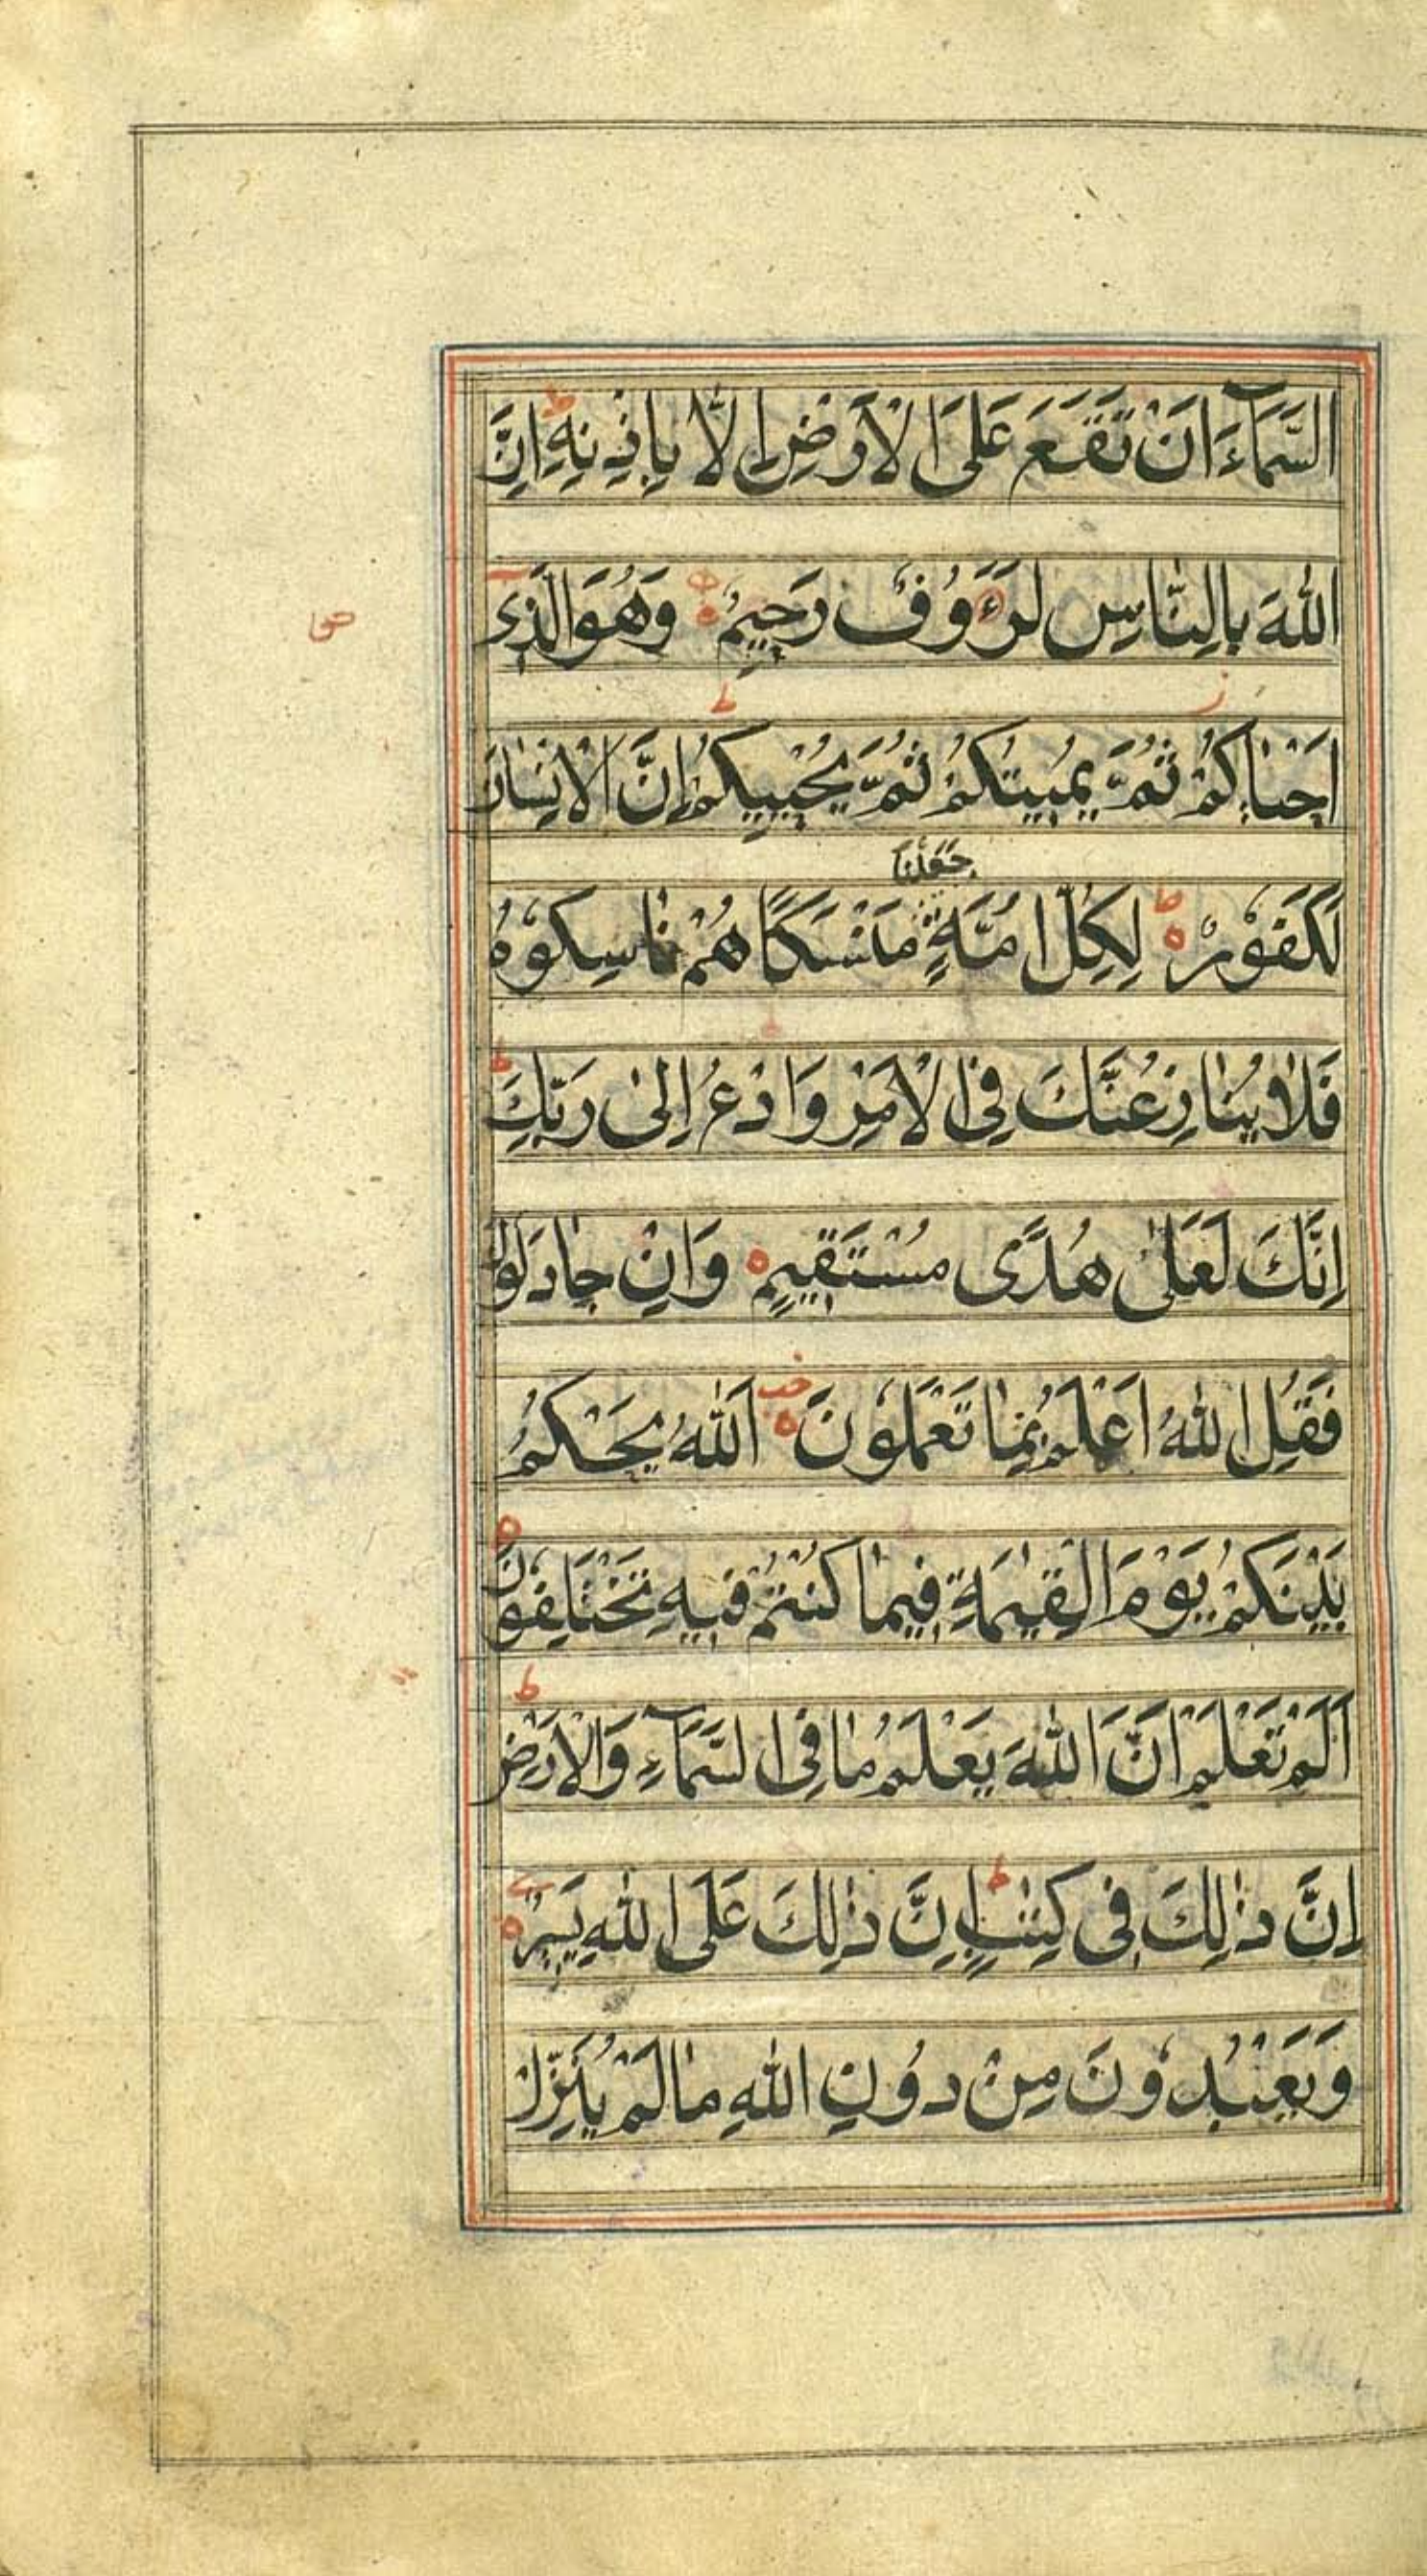 السَّمَآءَ اَنْ تَقَعَ عَلَى الْاَرْضِ اِلَّا بِاِذْنِهٖ ط اِنَّ
اللّٰهَ بِالنَّاسِ لَرَءُوْفٌ رَحِيْمٌ ه وَهُوَ الَّذِى
اَحْيَاكُمْ ز ثُمَّ يُمِيْتُكُمْ ثُمَّ يُحْيِيْكُمْ ط اِنَّ الْاِنْسَانَ
جَعَلْنَا
لَكَفُوْرٌ ه ط لِكُلِّ اُمَّةٍ مَنْسَكًا هُمْ نَاسِكُوْهُ
فَلَا يُنَازِعُنَّكَ فِى الْاَمْرِ وَادْعُ اِلٰى رَبِّكَ ط
اِنَّكَ لَعَلٰى هُدًى مُسْتَقِيْمٍ ه وَاِنْ جَادَلُوْكَ
فَقُلِ اللّٰهُ اَعْلَمُ بِمَا تَعْمَلُوْنَ ه اَللّٰهُ يَحْكُمُ
بَيْنَكُمْ يَوْمَ الْقِيٰمَةِ فِيْمَا كُنْتُمْ فِيْهِ تَخْتَلِفُوْنَ ه
اَلَمْ تَعْلَمْ اَنَّ اللّٰهَ يَعْلَمُ مَا فِى السَّمَآءِ وَالْاَرْضِ ط
اِنَّ ذٰلِكَ فِى كِتٰبٍ ط اِنَّ ذٰلِكَ عَلَى اللّٰهِ يَسِيْرٌ ه
وَيَعْبُدُوْنَ مِنْ دُوْنِ اللّٰهِ مَا لَمْ يُنَزِّلْ